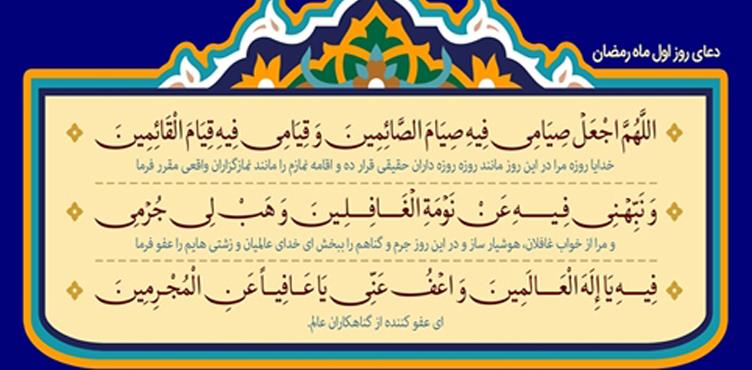 دعای روز اول ماه رمضان
اللَّهُمَّ اجْعَلْ صِيَامِی فِيهِ صِيَامَ الصَّائِمِينَ وَ قِيَامِی فِيهِ قِيَامَ الْقَائِمِينَ
خدایا روزه مرا در این روز مانند روزه روزه داران حقیقی قرار ده و اقامه نمازم را مانند نمازگزاران واقعی مقرر فرما
وَ نَبِّهْنِی فِيهِ عَنْ نَوْمَةِ الْغَافِلِينَ وَ هَبْ لِی جُرْمِی
و مرا از خواب غافلان، هوشیار ساز و در این روز جرم و گناهم را ببخش ای خدای عالمیان و زشتی هایم را عفو فرما
فِيهِ يَا إِلَهَ الْعَالَمِينَ وَ اعْفُ عَنِّی يَا عَافِياً عَنِ الْمُجْرِمِينَ
ای عفو کننده از گناهکاران عالم.